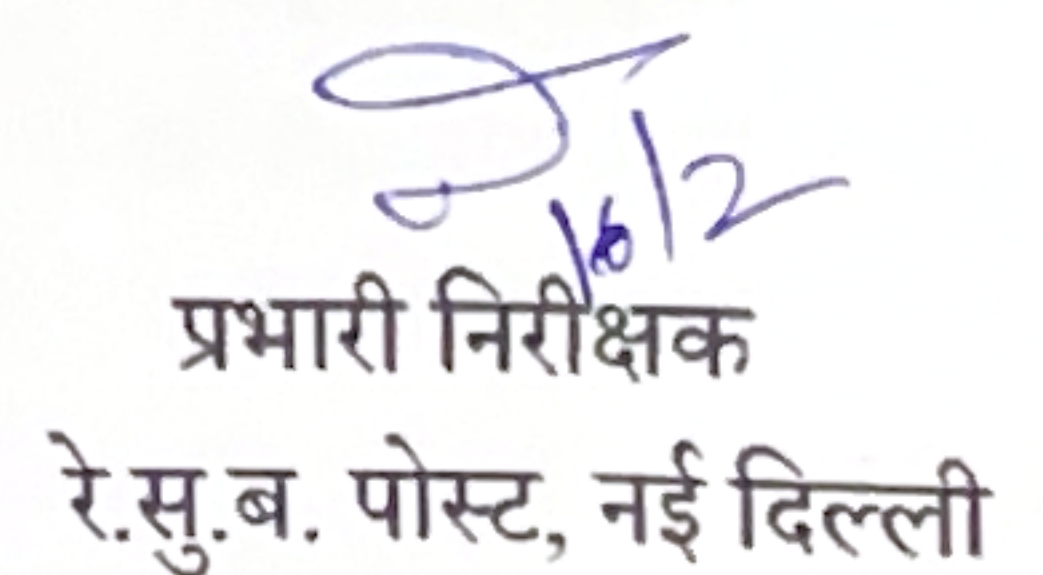 16/2
प्रभारी निरीक्षक
रे.सु.ब. पोस्ट, नई दिल्ली